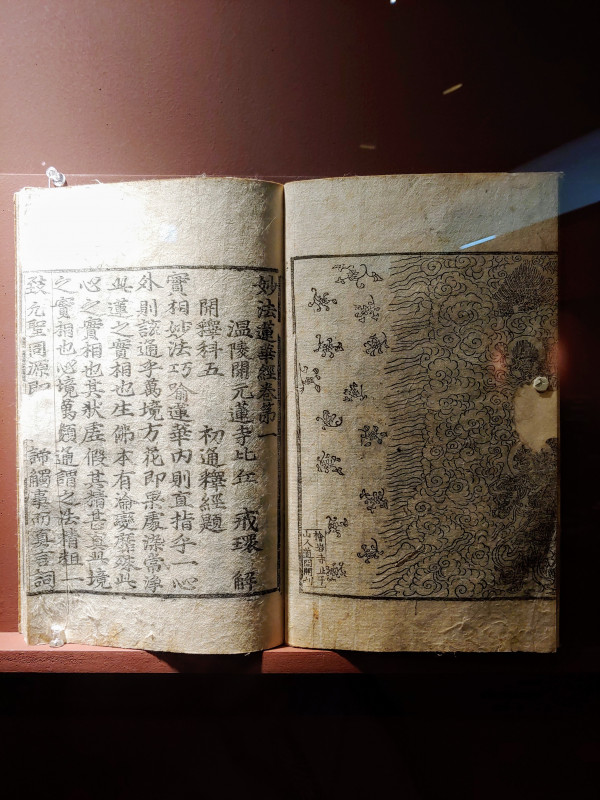 妙法蓮華經卷第一
温陵開元蓮寺比丘 戒環 解
開釋科五 初通釋經題
實相妙法巧喻蓮華内則直指乎一心
外則該通乎萬境方花即果處染常淨
此蓮之實相也生佛本有淪變靡殊此
心之實相也其狀虛假其精甚真此境
之實相也心境萬類通謂之法精粗一
致凡聖同源即 諦觸事而真言詞